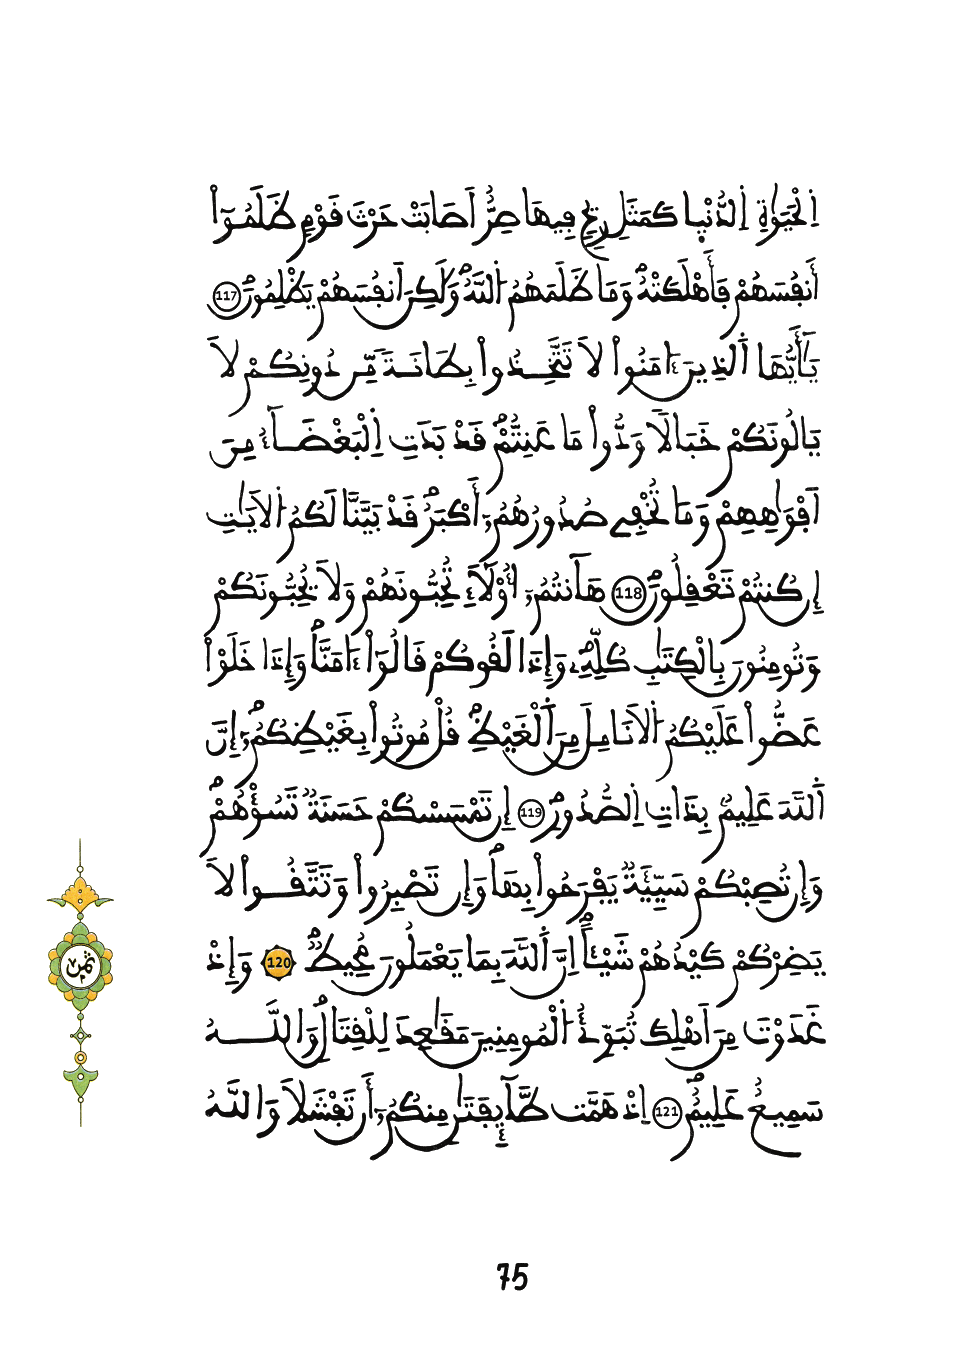 اِ۬لْحَيَوٰةِ اِ۬لدُّنْي۪ا كَمَثَلِ رِيحٖ فِيهَا صِرٌّ اَصَابَتْ حَرْثَ قَوْمٖ ظَلَمُوٓاْ
أَنفُسَهُمْ فَأَهْلَكَتْهُۖ وَمَا ظَلَمَهُمُ اُ۬للَّهُۖ وَلَٰكِنَ اَنفُسَهُمْ يَظْلِمُونَۖ 117
يَٰٓأَيُّهَا اَ۬لذِينَ ءَامَنُواْ لَا تَتَّخِذُواْ بِطَانَةٗ مِّن دُونِكُمْ لَا
يَالُونَكُمْ خَبَالاٗ وَدُّواْ مَا عَنِتُّمْۖ قَدْ بَدَتِ اِ۬لْبَغْضَآءُ مِنَ
اَفْوَٰهِهِمْ وَمَا تُخْفِے صُدُورُهُمُۥٓ أَكْبَرُۖ قَدْ بَيَّنَّا لَكُمُ اُ۬لَايَٰتِ
إِن كُنتُمْ تَعْقِلُونَۖ 118 هَآنتُمُۥٓ أُوْلَآءِ تُحِبُّونَهُمْ وَلَا يُحِبُّونَكُمْ
وَتُومِنُونَ بِالْكِتَٰبِ كُلِّهِۦۖ وَإِذَا لَقُوكُمْ قَالُوٓاْ ءَامَنَّاۖ وَإِذَا خَلَوْاْ
عَضُّواْ عَلَيْكُمُ اُ۬لَانَامِلَ مِنَ اَ۬لْغَيْظِۖ قُلْ مُوتُواْ بِغَيْظِكُمُۥٓۖ إِنَّ
اَ۬للَّهَ عَلِيمُۢ بِذَاتِ اِ۬لصُّدُورِۖ 119 إِن تَمْسَسْكُمْ حَسَنَةٞ تَسُؤْهُمْۖ
وَإِن تُصِبْكُمْ سَيِّئَةٞ يَفْرَحُواْ بِهَاۖ وَإِن تَصْبِرُواْ وَتَتَّقُواْ لَا
يَضِرْكُمْ كَيْدُهُمْ شَيْـٔاًۖ اِنَّ اَ۬للَّهَ بِمَا يَعْمَلُونَ مُحِيطٞۖ 120 وَإِذْ
غَدَوْتَ مِنَ اَهْلِكَ تُبَوِّئُ اُ۬لْمُومِنِينَ مَقَٰعِدَ لِلْقِتَالِۖ وَاللَّهُ
سَمِيعٌ عَلِيمٌۖ 121 اِذْ هَمَّت طَّآئِفَتَٰنِ مِنكُمُۥٓ أَن تَفْشَلَا وَاللَّهُ
ثمن
75